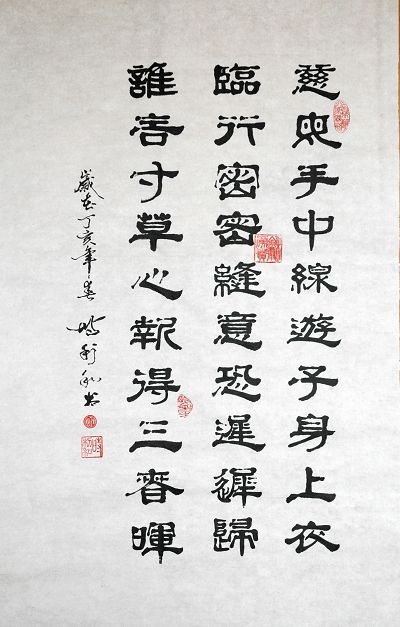 慈母手中線遊子身上衣
臨行密密縫意恐遲遲歸
誰言寸草心報得三春暉
歲在丁亥年春